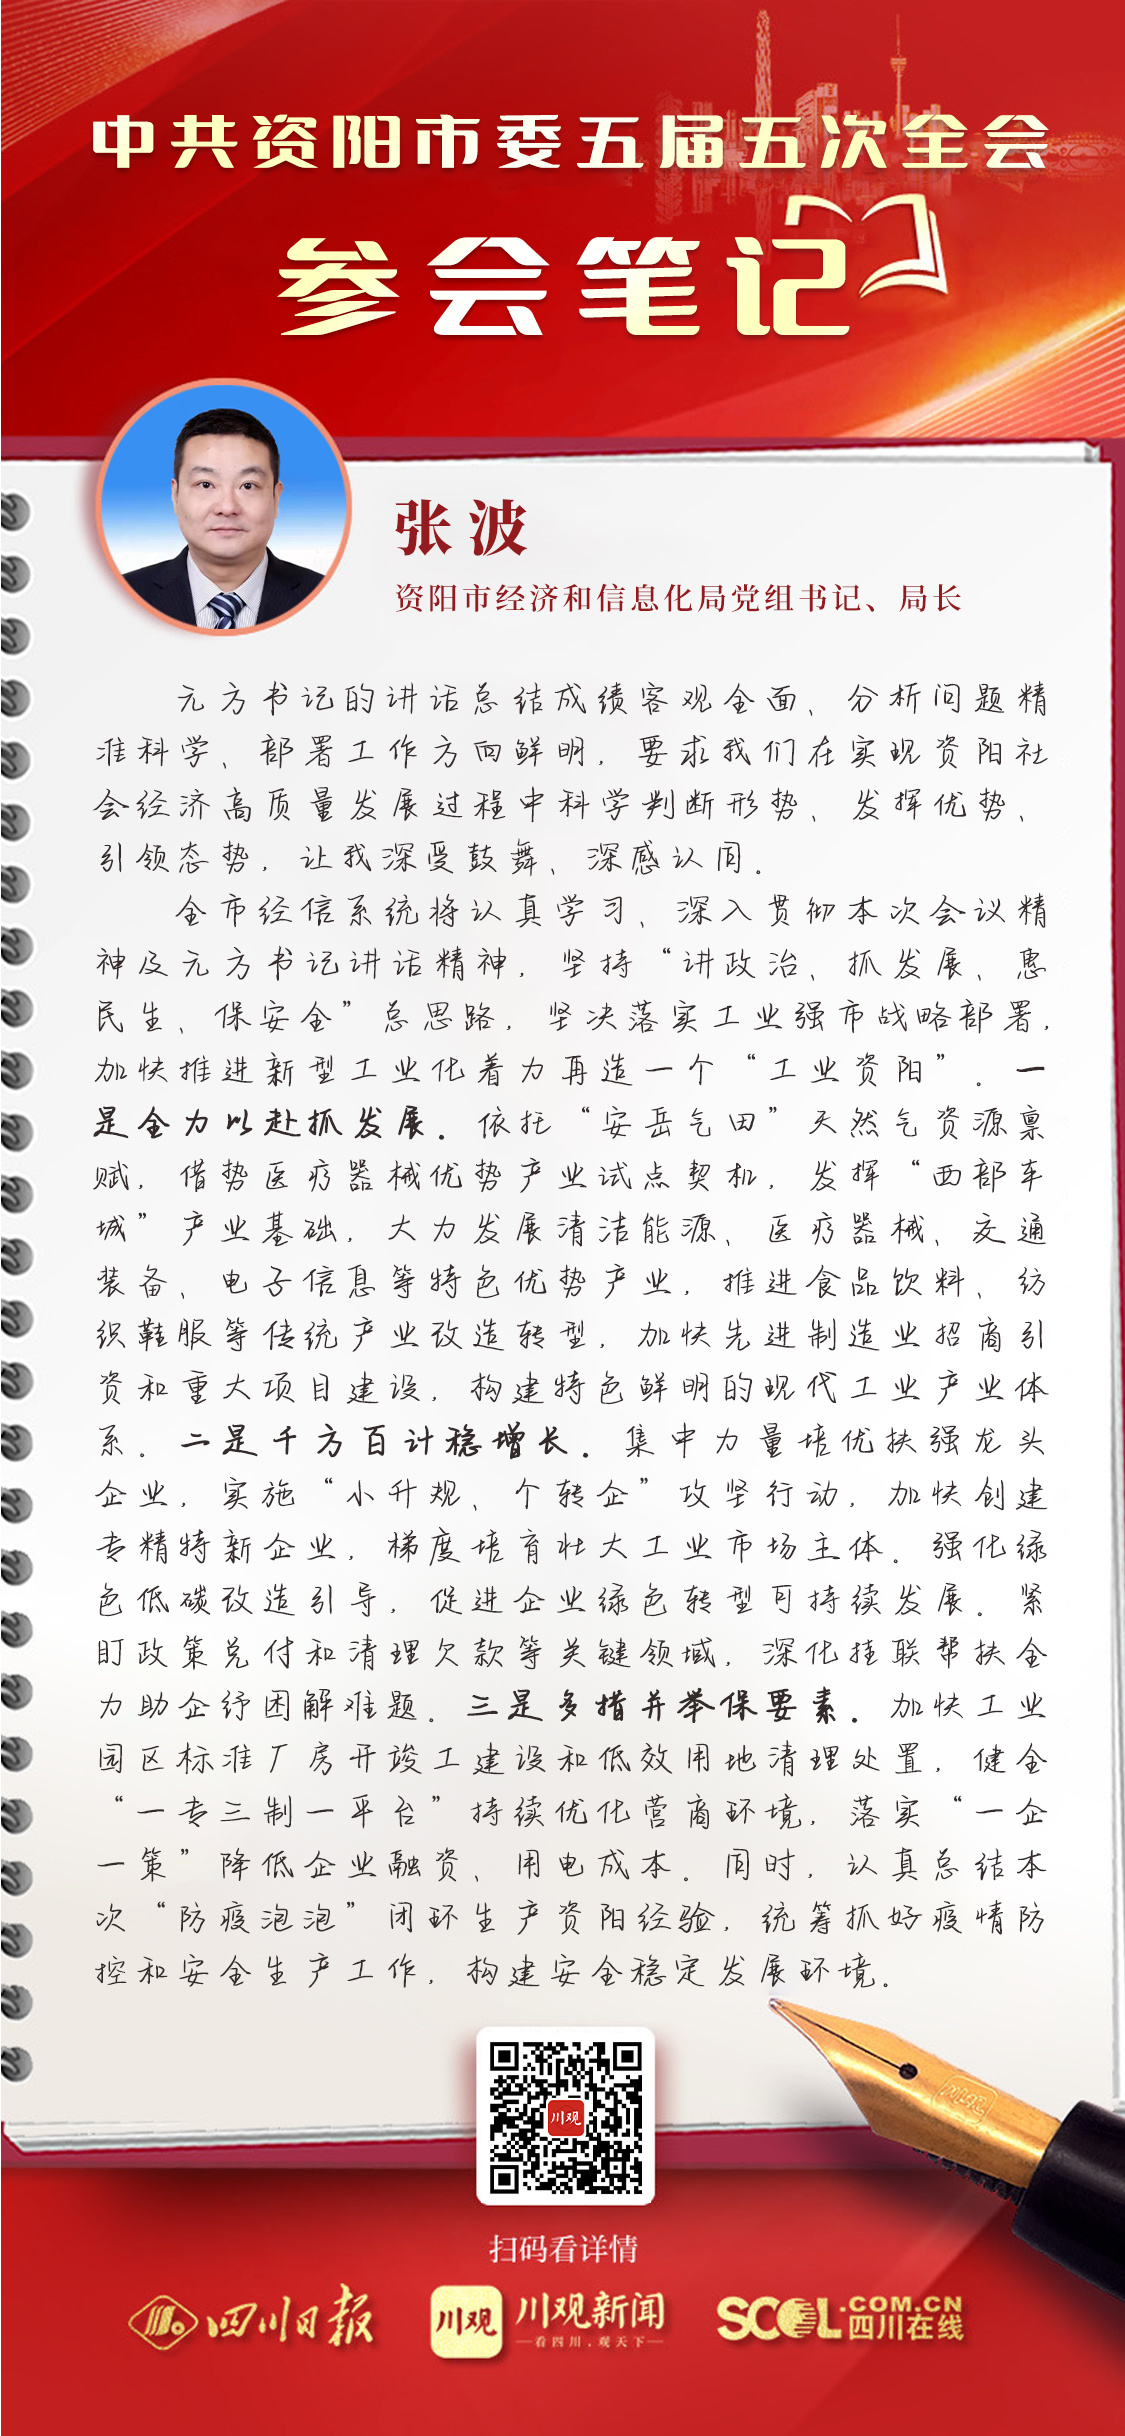 中共资阳市委五届五次全会
参会笔记
张波
资阳市经济和信息化局党组书记、局长
元方书记的讲话总结成绩客观全面、分析问题精
准科学、部署工作方向鲜明，要求我们在实现资阳社
会经济高质量发展过程中科学判断形势、发挥优势、
引领态势，让我深受鼓舞、深感认同。
全市经信系统将认真学习、深入贯彻本次会议精
神及元方书记讲话精神，坚持“讲政治、抓发展、惠
民生、保安全”总思路，坚决落实工业强市战略部署，
加快推进新型工业化着力再造一个“工业资阳”。一
是全力以赴抓发展。依托“安岳气田”天然气资源禀
赋，借势医疗器械优势产业试点契机，发挥“西部车
城”产业基础，大力发展清洁能源、医疗器械、交通
装备、电子信息等特色优势产业，推进食品饮料、纺
织鞋服等传统产业改造转型，加快先进制造业招商引
资和重大项目建设，构建特色鲜明的现代工业产业体
系。二是千方百计稳增长。集中力量培优扶强龙头
企业，实施“小升规、个转企”攻坚行动，加快创建
专精特新企业，梯度培育壮大工业市场主体。强化绿
色低碳改造引导，促进企业绿色转型可持续发展。紧
盯政策兑付和清理欠款等关键领域，深化挂联帮扶全
力助企纾困解难题。三是多措并举保要素。加快工业
园区标准厂房开竣工建设和低效用地清理处置，健全
“一专三制一平台”持续优化营商环境，落实“一企
一策”降低企业融资、用电成本。同时，认真总结本
次“防疫泡泡”闭环生产资阳经验，统筹抓好疫情防
控和安全生产工作，构建安全稳定发展环境。
川观
扫码看详情
四川日报
川观
川观新闻
看四川，观天下
SCOL.COM.CN
四川在线